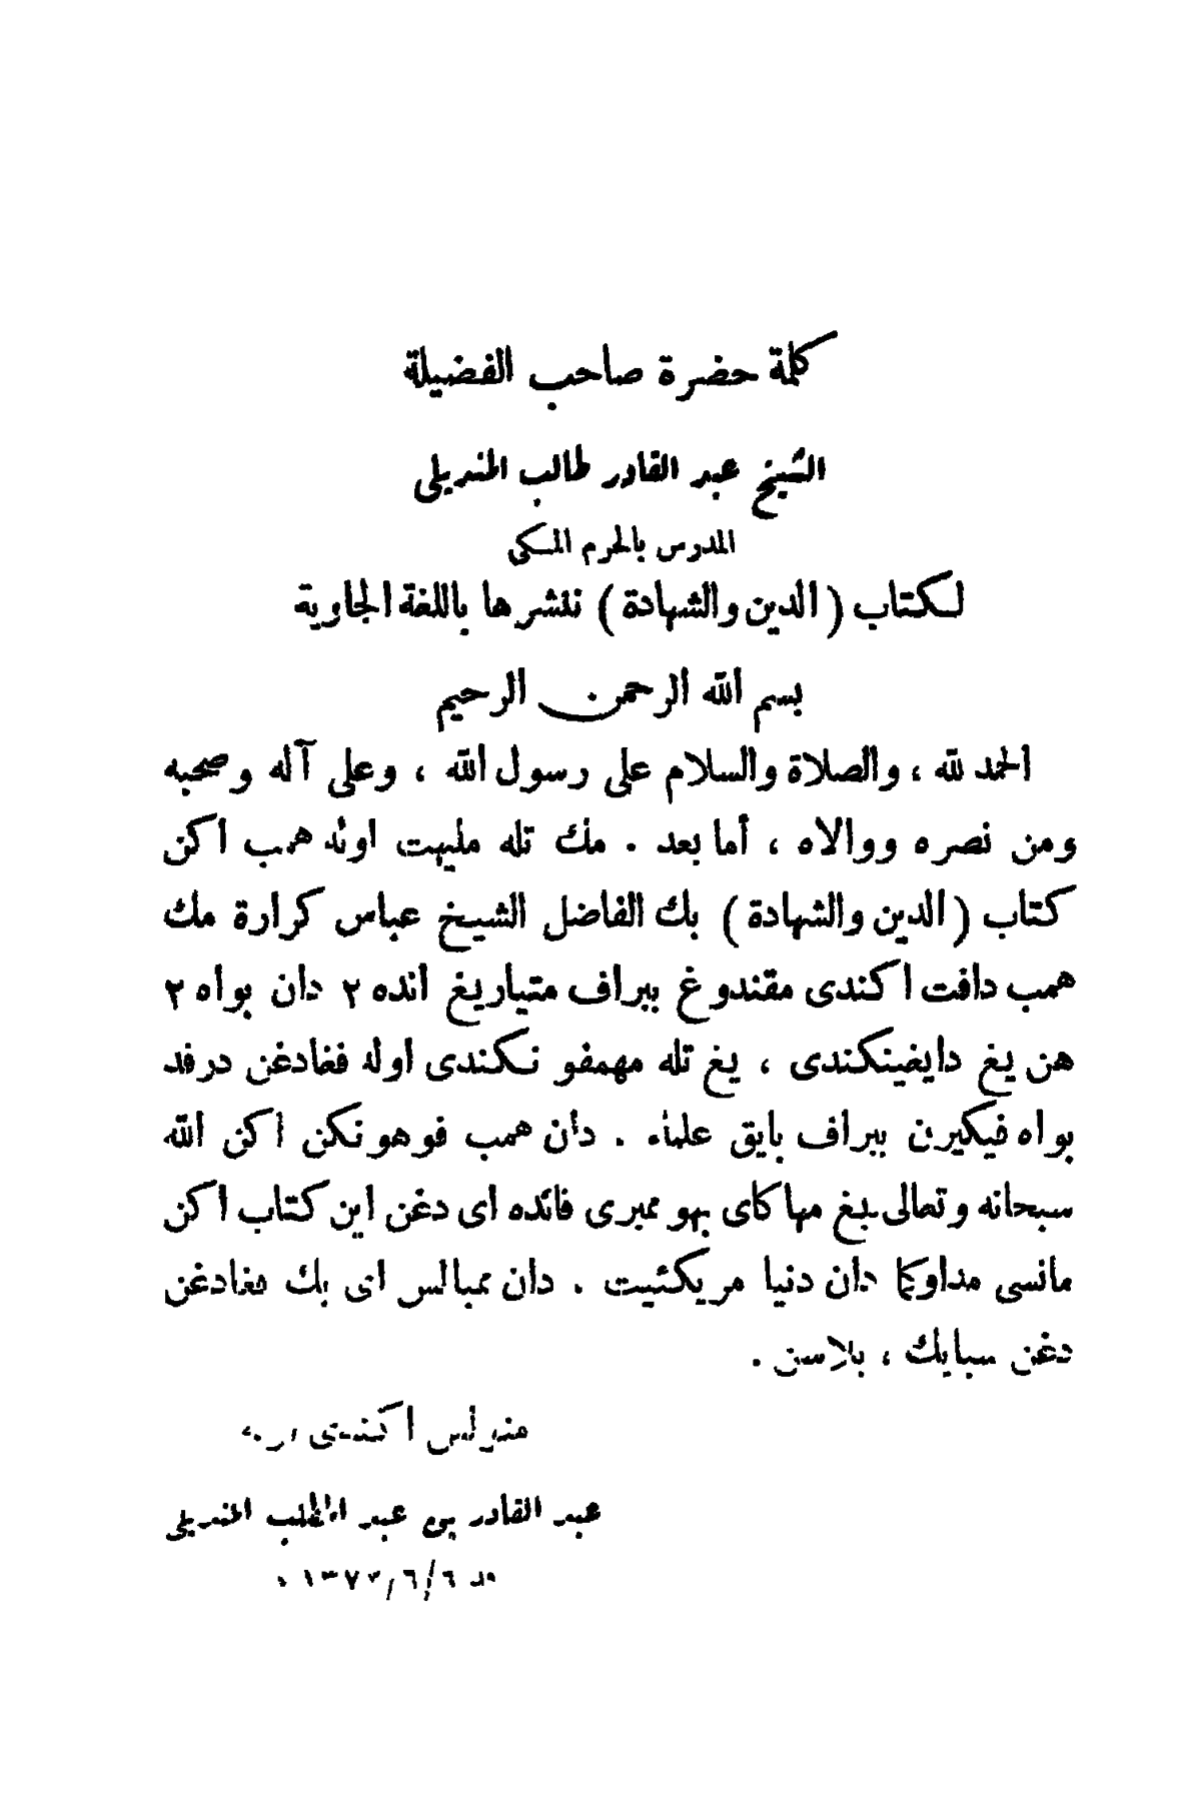 كلمة حضرة صاحب الفضيلة
الشيخ عبد القادر طالب المنديلى
المدرس بالحرم المكى
لكتاب (الدين والشهادة) ننشرها باللغة الجاوية
بسم الله الرحمن الرحيم
الحمد لله ، والصلاة والسلام على رسول الله ، وعلى آله وصحبه
ومن نصره ووالاه ، أما بعد . مك تله مليهت اوله همب اكن
كتاب (الدين والشهادة) بك الفاضل الشيخ عباس كرارة مك
همب دافت اكندى مقندوغ ببراف متياريغ انده ٢ دان بواه ٢
هن يغ دايغينكندى ، يغ تله مهمفو نكندى اوله فغادغن درفد
بواه فيكيرن ببراف بايق علماء . دان همب فوهونكن اكن الله
سبحانه وتعالى بغ مها كاى بهو ممبرى فائده اى دغن اين كتاب اكن
مانسى مداوكا دان دنيا مريكئيت . دان ممبالس اى بك فغادغن
دغن سبايك ، بلاسن .
منولس اكندى
عبد القادر بن عبد المطلب المنديلى
٦/٦/١٣٧٣